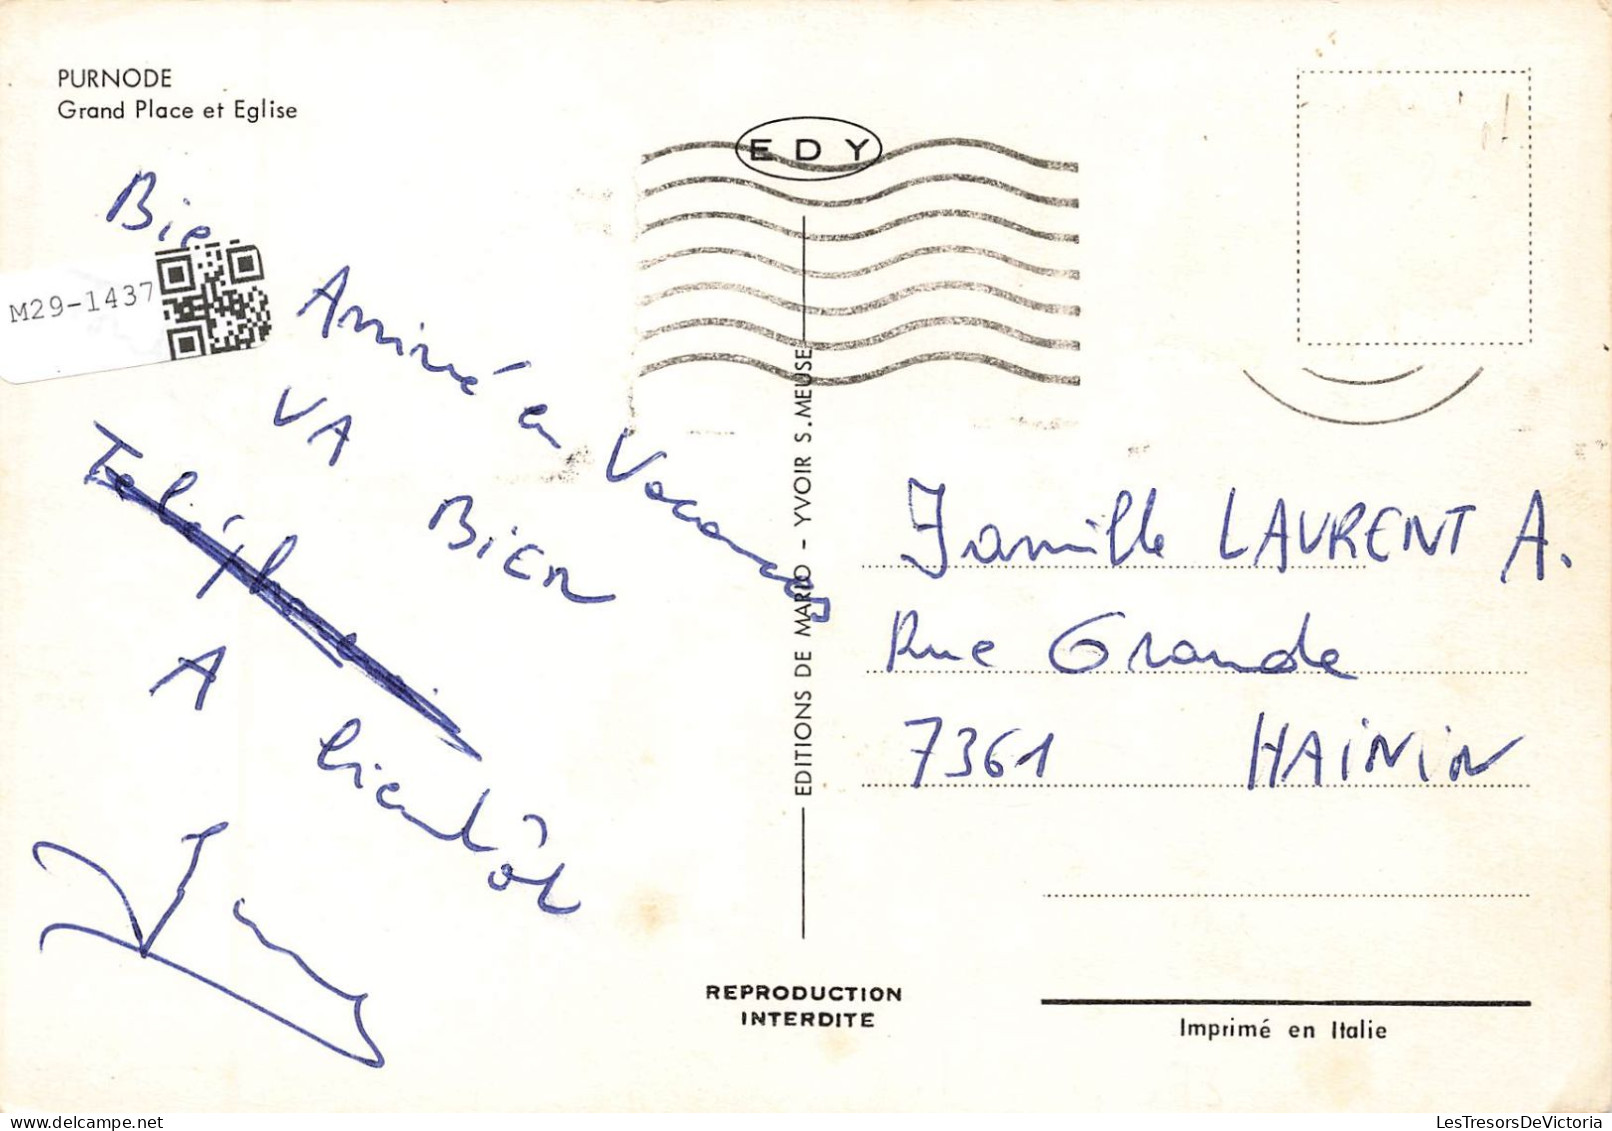 PURNODE
Grand Place et Eglise
EDY
Bie
M29-1437
Arrivé en Vacances
VA BiEn
A bientôt
EDITIONS DE MARIO - YVOIR S.MEUSE
Famille LAURENT A.
Rue Grande
7361 HAiNiN
REPRODUCTION
INTERDITE
Imprimé en Italie
LesTresorsDeVictoria